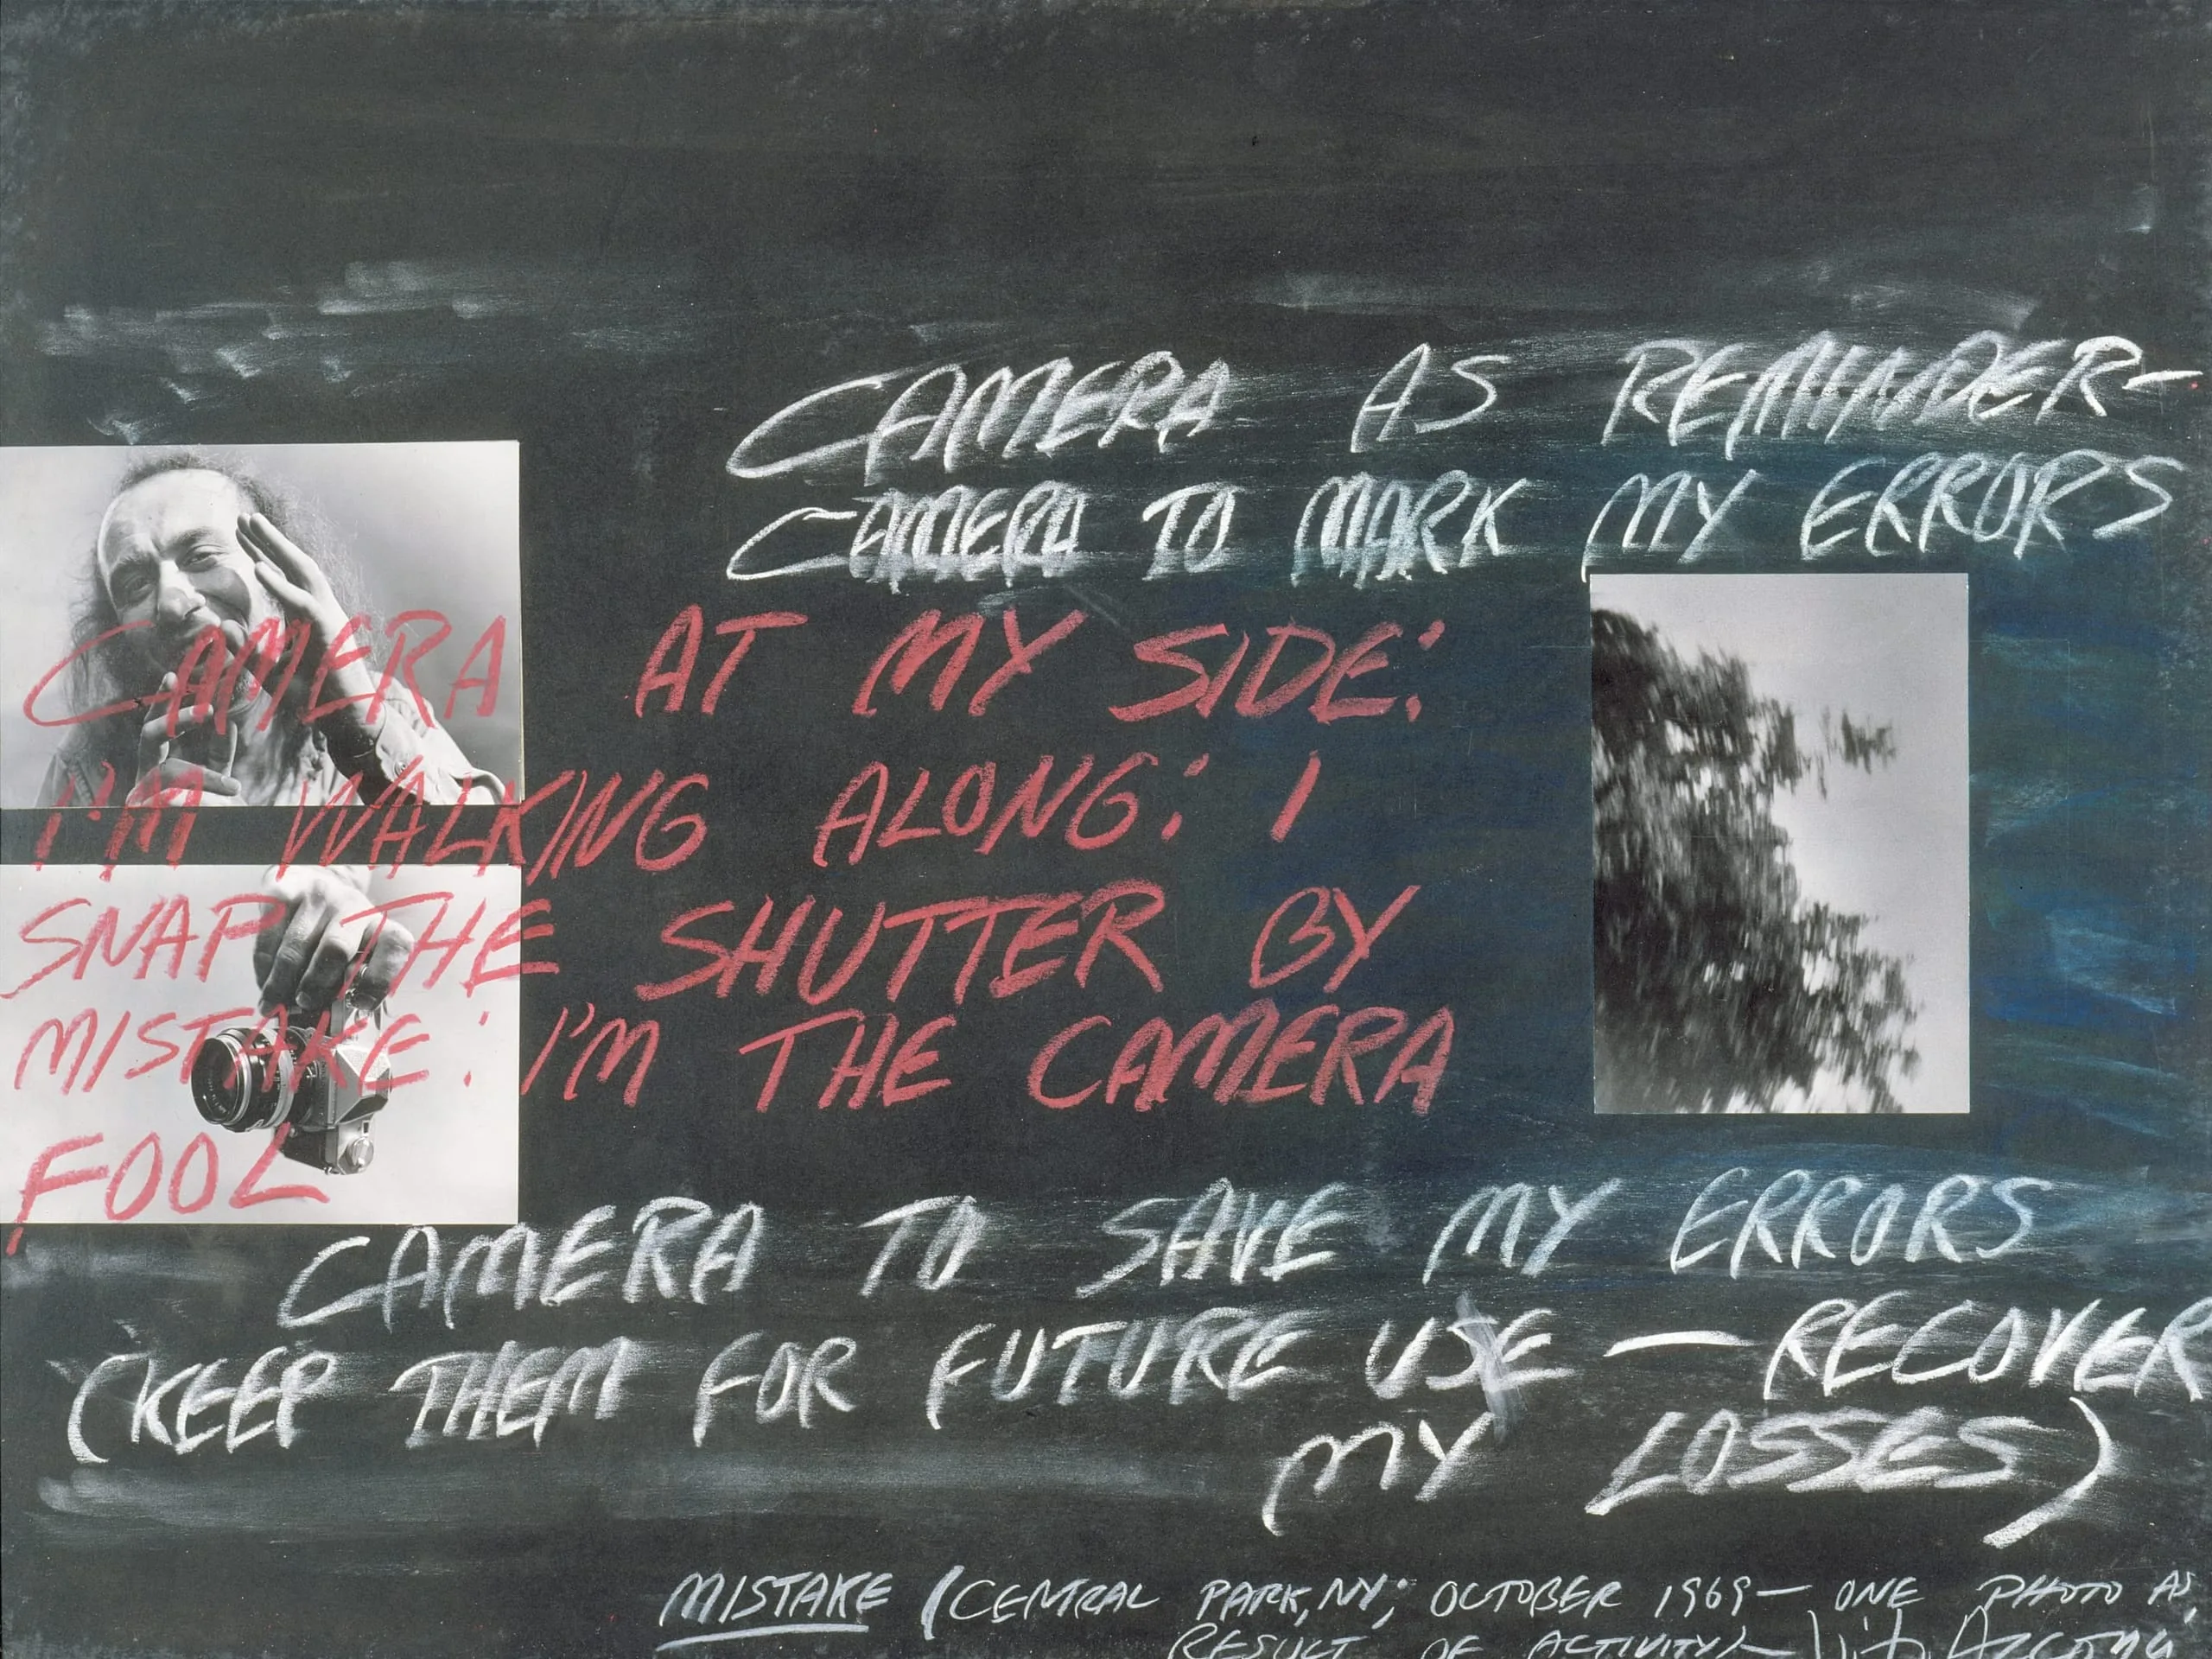 CAMERA AS REMINDER—
CAMERA TO MARK MY ERRORS
CAMERA AT MY SIDE:
I'M WALKING ALONG: I
SNAP THE SHUTTER BY
MISTAKE: I'M THE CAMERA
FOOL
CAMERA TO SAVE MY ERRORS
(KEEP THEM FOR FUTURE USE — RECOVER
MY LOSSES)
MISTAKE (CENTRAL PARK, NY; OCTOBER 1969— ONE PHOTO AS
RESULT OF ACTIVITY)— Vito Acconci